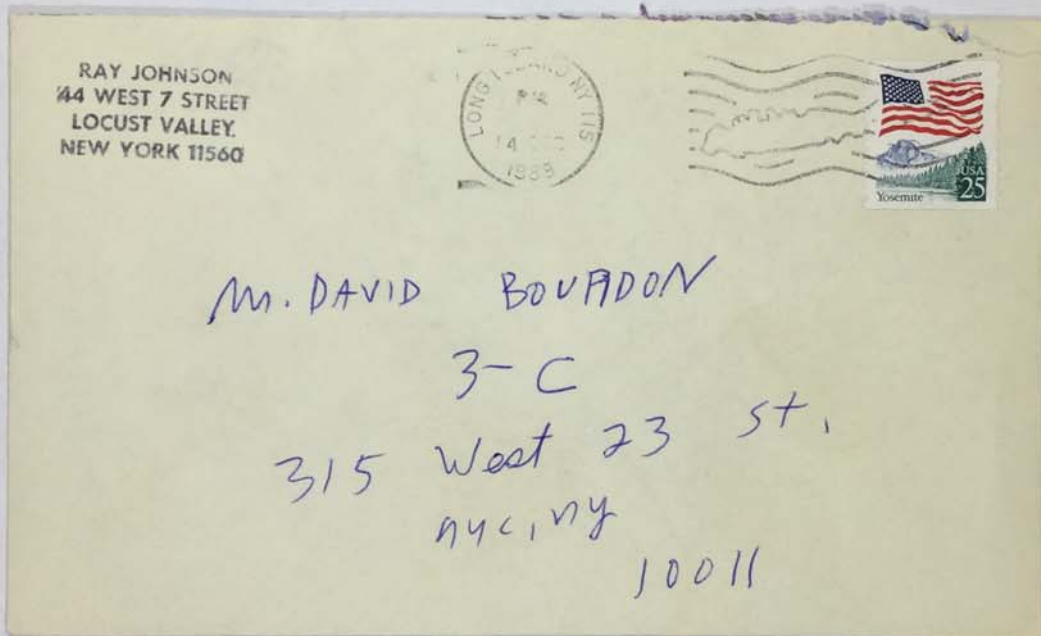 RAY JOHNSON
44 WEST 7 STREET
LOCUST VALLEY.
NEW YORK 11560
LONG ISLAND NY 115
PM
14
1989
USA
25
Yosemite
M. DAVID BOURDON
3-C
315 West 23 st.
nyc, ny
10011